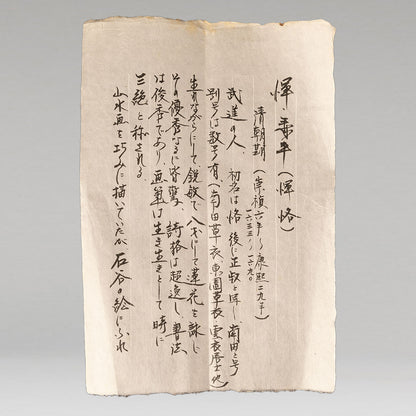 惲・寿平（惲恪）
清朝期（崇禎六年〜康熙二九年）
一六三三〜一六九〇
武進の人、初名は恪 後に正叔と号し、南田と号
別号は数号有、（南田草衣、東園草衣 雲衣居士他）
生れながらにして、鋭敏で八才にして蓮花を詠じ
その優秀なるに
詩格は超逸し、書法
は俊秀であり、画筆は生き生きとして 時に
三絶と称される
山水画を巧みに描いていたが 石谷の絵にふれ